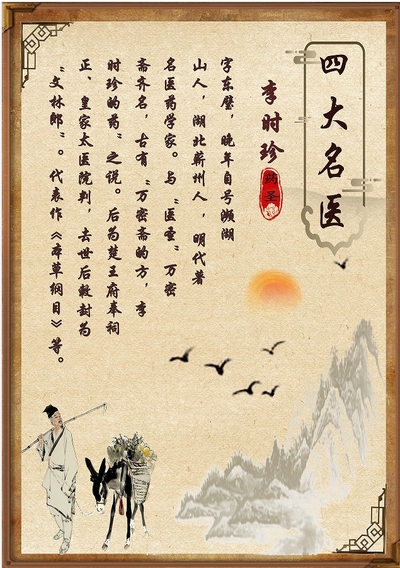 四大名医
李时珍
药圣
字东璧，晚年自号濒湖
山人，湖北蕲州人，明代著
名医药学家。与“医圣”万密
斋齐名，古有“万密斋的方，李
时珍的药”之说。后为楚王府奉祠
正、皇家太医院判，去世后敕封为
“文林郎”。代表作《本草纲目》等。